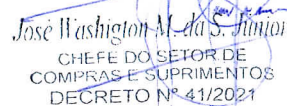 José Washigton M. da S. Júnior
CHEFE DO SETOR DE
COMPRAS E SUPRIMENTOS
DECRETO Nº 41/2021